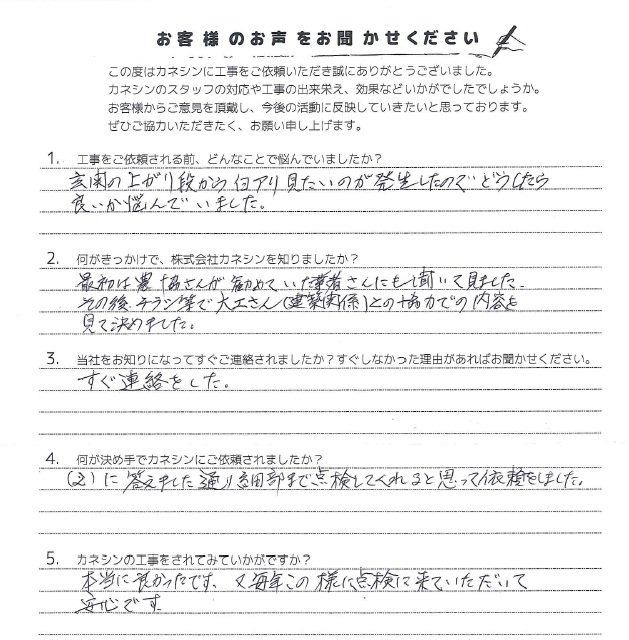 お客様のお声をお聞かせください
この度はカネシンに工事をご依頼いただき誠にありがとうございました。
カネシンのスタッフの対応や工事の出来栄え、効果などいかがでしたでしょうか。
お客様からご意見を頂戴し、今後の活動に反映していきたいと思っております。
ぜひご協力いただきたく、お願い申し上げます。
1. 工事をご依頼される前、どんなことで悩んでいましたか？
玄関の上がり段から白アリ見たいのが発生したのでどうしたら
良いか悩んでいました。
2. 何がきっかけで、株式会社カネシンを知りましたか？
最初は農協さんが勧めていた業者さんにもし聞いて見ました。
その後、チラシ等で大工さん(建築関係)との協力での内容を
見て決めました。
3. 当社をお知りになってすぐご連絡されましたか？すぐしなかった理由があればお聞かせください。
すぐ連絡をした。
4. 何が決め手でカネシンにご依頼されましたか？
(2)に答えました通り細部まで点検してくれると思って依頼をしました。
5. カネシンの工事をされてみていかがですか？
本当に良かったです、又毎年この様に点検に来ていただいて
安心です